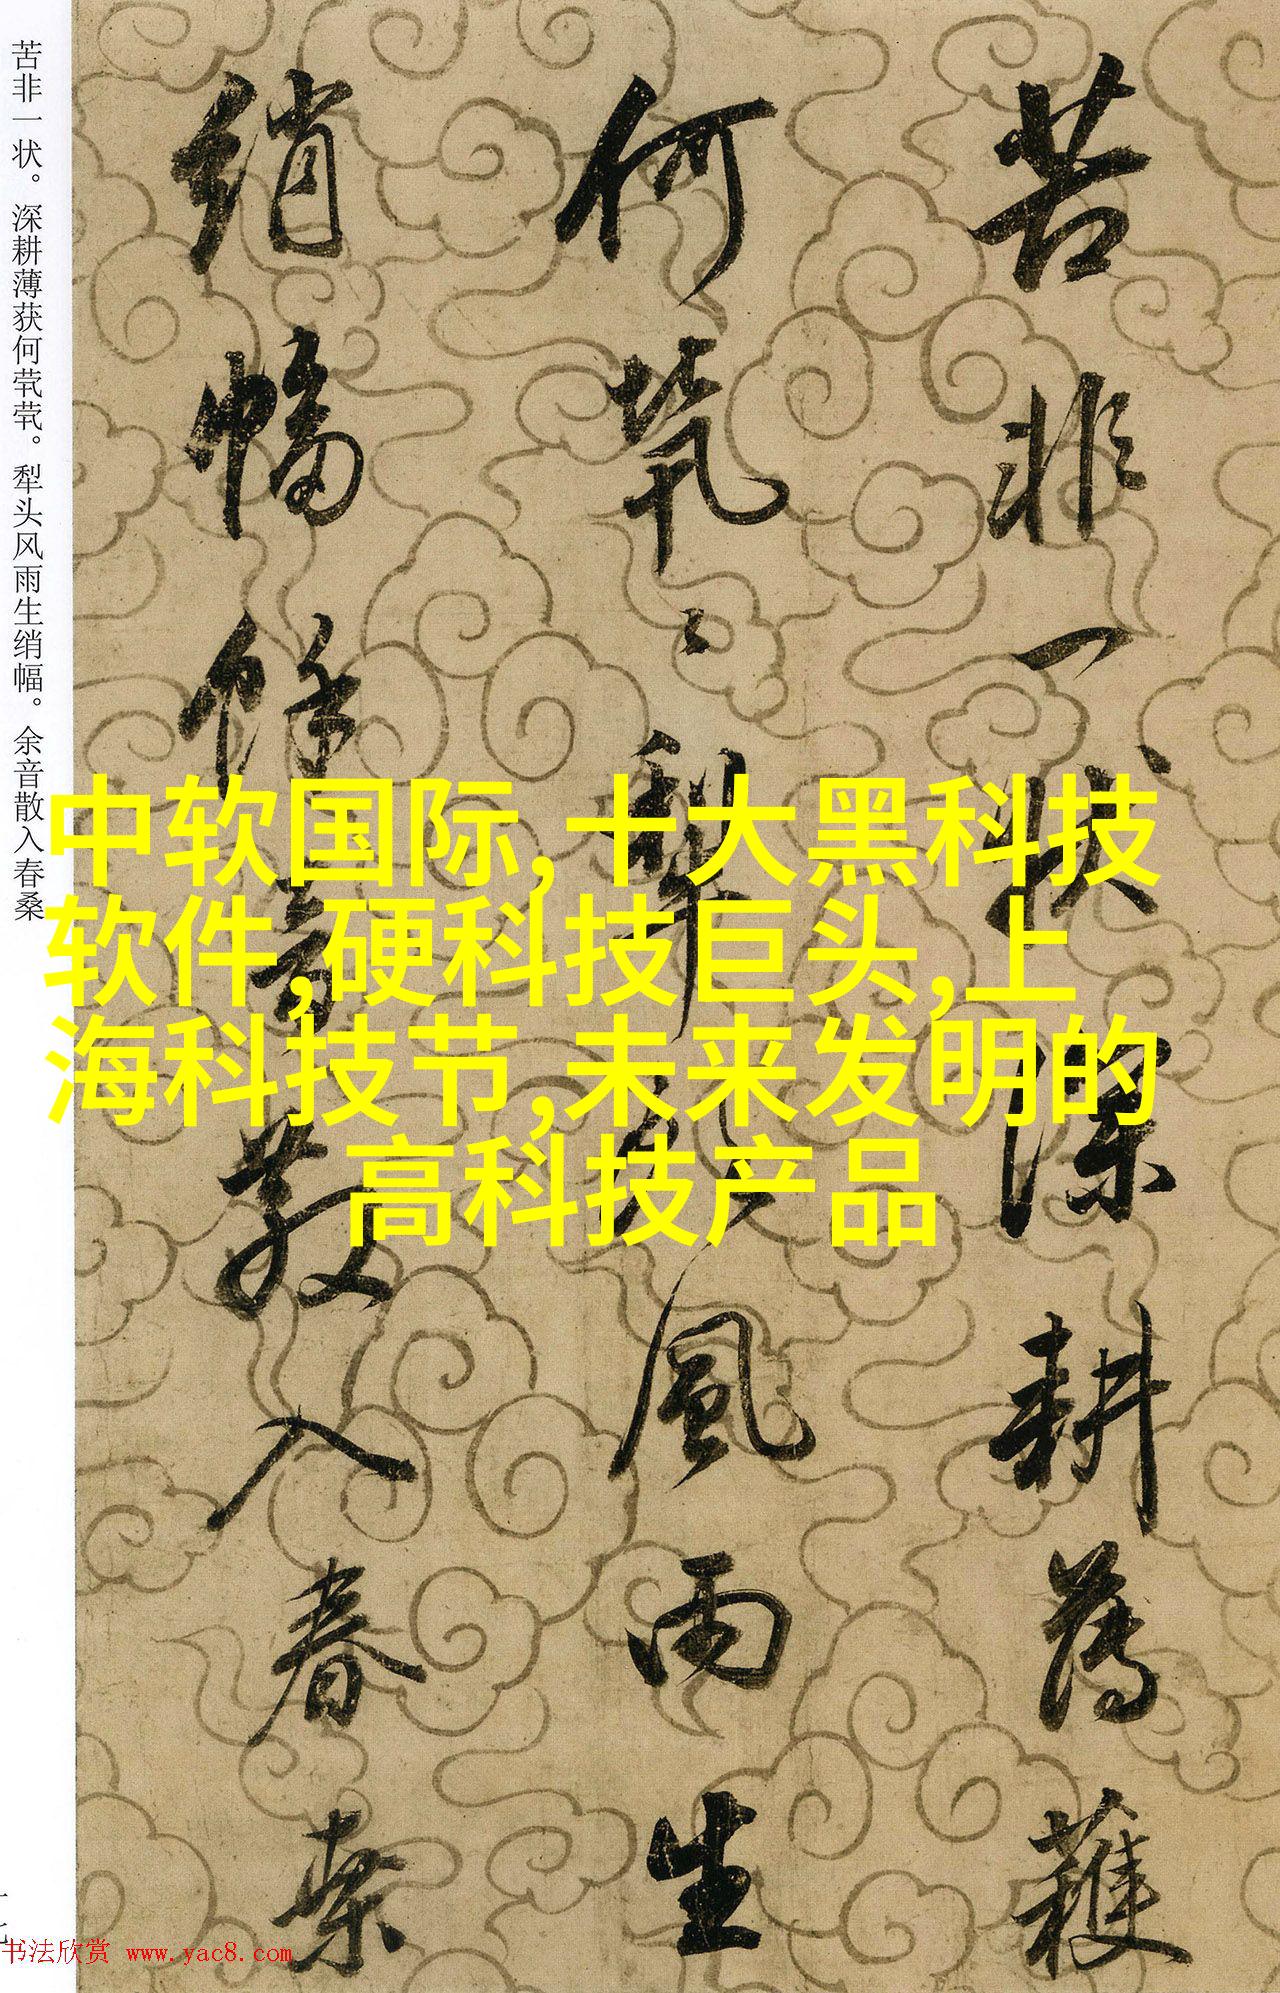 苦非一状。深耕薄获何茕茕。犁头风雨生绡幅。余音散入春桑
苦非一状深耕薄穫
何茕〻犁头風雨生
绡幅余音散入春桑
中软国际,十大黑科技
软件,硬科技巨头,上
海科技节,未来发明的
高科技产品
书法欣赏 www.yac8.com